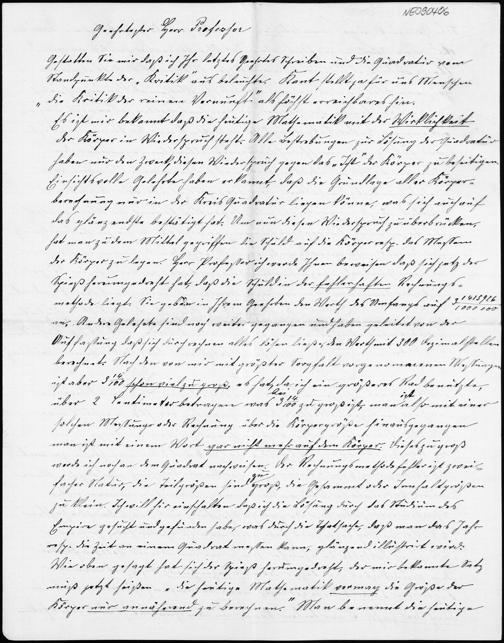 NE030406
Geehrtester Herr Professor
Gestatten Sie mir daß ich Ihr letztes Geehrtes Schreiben und die Quadratur vom
Standpunkte der Kritik aus beleuchte. Kant stellt ja für uns Menschen
„die Kritik der reinen Vernunft" als höchst erreichbares hin.
Es ist mir bekannt daß die heutige Mathematik mit der Wirklichkeit
der Körper in Wiederspruch steht. Alle Bestrebungen zur Lösung der Quadratur
haben nur den Zweck diesen Wiederspruch gegen das Ist der Körper zu beseitigen
Einsichtsvolle Gelehrte haben erkannt, daß die Grundlage aller Körper-
berechnung nur in der Kreis Quadratur liegen könne, was sich auch auf
das glänzendste bestätigt hat. Um nun diesen Wiederspruch zu überbrücken,
hat man zu dem Mittel gegriffen die Schuld auf die Körper resp. das Messen
der Körper zu legen. Herr Professor ich werde Ihnen beweisen daß sich jetzt der
Spieß herumgedreht hat, daß die Schuld in der fehlerhaften Rechnungs-
methode liegt. Sie geben in Ihrem Geehrten den Werth des Umfangs auf 3 1415926
an. Andre Gelehrte sind noch weiter gegangen und haben geleitet von der
Auffassung daß sich durch rechnen alles lösen ließe, den Werth mit 300 Dezimalstellen
berechnet. Nach den von mir mit größter Sorgfalt vorgenommenen Messungen
ist aber 3 14/100 schon viel zu groß, es hat, da ich ein größeres Rad benützte,
über 2 Centimeter betragen was 3 14/100 zu groß ist, man ist also mit einer
solchen Messung oder Rechnung über die Körpergröße hinausgegangen
man ist mit einem Wort gar nicht mehr auf dem Körper. Dieses zu groß
werde ich an den Quadrat nachweisen. Der Rechnungsmethodefehler ist zwei-
facher Natur, die Theilgrößen sind zu groß, die Gesammt oder Innhaltgrößen
zu klein. Ich will hier einschalten daß ich die Lösung durch das Studium des
Empire gesucht und gefunden habe, was durch die Thatsache, daß man das Jahr
resp. die Zeit an einem Quadrat messen kann, glänzend illustrirt wird.
Wie oben gesagt hat sich der Spieß herumgedreht, der mir bekannte Satz
muß jetzt heißen „die heutige Mathematik vermag die Größe der
Körper nur annähernd zu berechnen." Man benennt die heutige